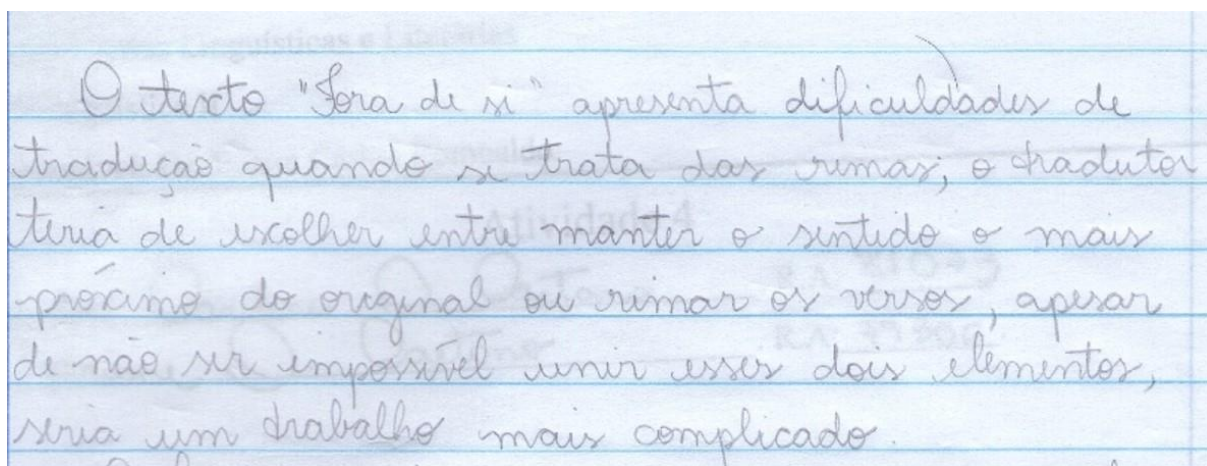 O texto "Fora de si" apresenta dificuldades de
tradução quando se trata das rimas; o tradutor
teria de escolher entre manter o sentido o mais
próximo do original ou rimar os versos, apesar
de não ser impossível unir esses dois elementos,
seria um trabalho mais complicado.